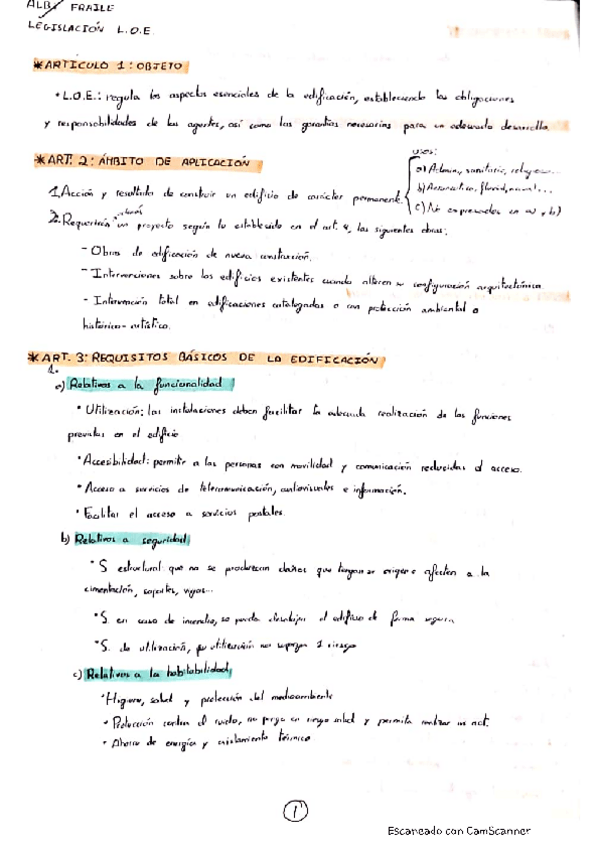 ALBA FRAILE
LEGISLACIÓN L.O.E.
*ARTICULO 1: OBJETO
• L.O.E.: regula los aspectos esenciales de la edificación, estableciendo las obligaciones
y responsabilidades de los agentes, así como las garantías necesarias para un adecuado desarrollo.
*ART. 2: ÁMBITO DE APLICACIÓN
usos:
a) Admin, sanitario, religioso...
1. Acción y resultado de construir un edificio de carácter permanente.
b) Aeronáutico, fluvial, naval...
c) No expresados en a) y b)
2. Requerirán un proyecto según lo establecido en el art. 4, las siguientes obras:
- Obras de edificación de nueva construcción.
- Intervenciones sobre los edificios existentes cuando alteren su configuración arquitectónica.
- Intervención total en edificaciones catalogadas o con protección ambiental o
histórico-artístico.
*ART. 3: REQUISITOS BÁSICOS DE LA EDIFICACIÓN
1.
a) Relativos a la funcionalidad
• Utilización: las instalaciones deben facilitar la adecuada realización de las funciones
previstas en el edificio
• Accesibilidad: permitir a las personas con movilidad y comunicación reducidas el acceso.
• Acceso a servicios de telecomunicación, audiovisuales e información.
• Facilitar el acceso a servicios postales.
b) Relativos a seguridad
• S estructural: que no se produzcan daños que tengan su origen o afecten a la
cimentación, soportes, vigas...
• S. en caso de incendio, se pueda desalojar el edificio de forma segura
• S. de utilización, su utilización no suponga 1 riesgo
c) Relativos a la habitabilidad
• Higiene, salud y protección del medioambiente
• Protección contra el ruido, no ponga en riesgo salud y permita realizar sus act.
• Ahorro de energía y aislamiento térmico
1
Escaneado con CamScanner